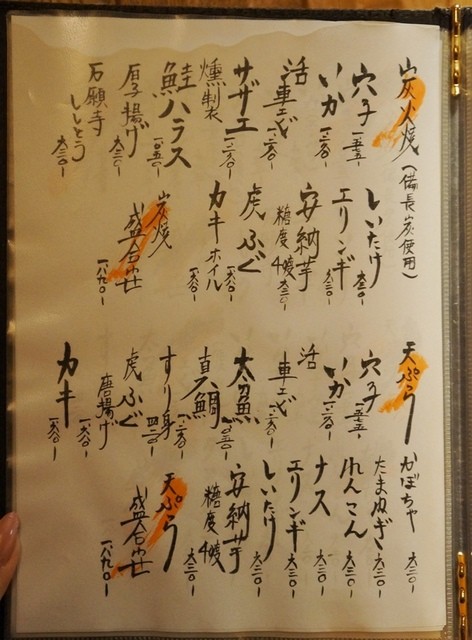 炭火焼(備長炭使用)
穴子 一五七五-
いか 一二六〇-
活車エビ 一二六〇-
サザエ 一二六〇-
燻製
鮭ハラス 一〇五〇-
揚げ 六三〇-
ししとう 六三〇-
しいたけ 六三〇-
エリンギ 六三〇-
安納芋
糖度 六三〇-
虎ふぐ 一六八〇-
カキホイル 一六八〇-
炭焼
盛合わせ 一八九〇-
天ぷら
穴子 一五七五-
いか 一二六〇-
活車エビ 一二六〇-
一〇五〇-
真鯛 一二六〇-
すり身 四二〇-
虎ふぐ
唐揚げ 一六八〇-
カキ 一六八〇-
かぼちゃ 六三〇-
たまねぎ 六三〇-
れんこん 六三〇-
ナス 六三〇-
エリンギ 六三〇-
しいたけ 六三〇-
安納芋
糖度 六三〇-
天ぷら
盛合わせ 一八九〇-